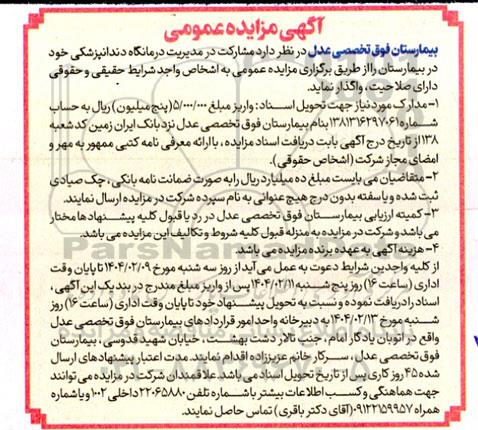 آگهی مزایده عمومی
بیمارستان فوق تخصصی عدل در نظر دارد مشارکت در مدیریت درمانگاه دندانپزشکی خود
در بیمارستان را از طریق برگزاری مزایده عمومی به اشخاص واجد شرایط حقیقی و حقوقی
دارای صلاحیت، واگذار نماید.
۱- مدارک مورد نیاز جهت تحویل اسناد: واریز مبلغ ۵/۰۰۰/۰۰۰ (پنج میلیون) ریال به حساب
شماره ۱۳۸۱۳۱۶۲۹۷۰۶۱ بنام بیمارستان فوق تخصصی عدل نزد بانک ایران زمین کد شعبه
۱۳۸ از تاریخ درج آگهی بابت دریافت اسناد مزایده، با ارائه معرفی نامه کتبی ممهور به مهر و
امضای مجاز شرکت (اشخاص حقوقی).
۲- متقاضیان می بایست مبلغ ده میلیارد ریال را به صورت ضمانت نامه بانکی، چک صیادی
ثبت شده و یا سفته بدون درج هیچ عنوانی به نام سپرده شرکت در مزایده ارسال نمایند.
۳- کمیته ارزیابی بیمارستان فوق تخصصی عدل در رد یا قبول کلیه پیشنهادها مختار
می باشد و شرکت در مزایده به منزله قبول کلیه شروط و تکالیف این مزایده می باشد.
۴- هزینه آگهی به عهده برنده مزایده می باشد.
از کلیه واجدین شرایط دعوت به عمل می آید از روز سه شنبه مورخ ۱۴۰۴/۰۲/۰۹ تا پایان وقت
اداری (ساعت ۱۶) روز پنج شنبه ۱۴۰۴/۰۲/۱۱ پس از واریز مبلغ مندرج در بند یک این آگهی،
اسناد را دریافت نموده و نسبت به تحویل پیشنهاد خود تا پایان وقت اداری (ساعت ۱۶) روز
شنبه مورخ ۱۴۰۴/۰۲/۱۳ به دبیرخانه واحد امور قراردادهای بیمارستان فوق تخصصی عدل
واقع در اتوبان یادگار امام، جنب تالار دشت بهشت، خیابان شهید قدوسی، بیمارستان
فوق تخصصی عدل، سرکار خانم عزیززاده اقدام نمایند. مدت اعتبار پیشنهادهای ارسال
شده ۴۵ روز کاری پس از تاریخ تحویل اسناد می باشد. علاقمندان شرکت در مزایده می توانند
جهت هماهنگی و کسب اطلاعات بیشتر با شماره تلفن ۲۲۰۶۵۸۸۰ داخلی ۱۰۰۲ و یا شماره
همراه ۰۹۱۲۲۱۵۹۹۵۷ (آقای دکتر باقری) تماس حاصل نمایند.